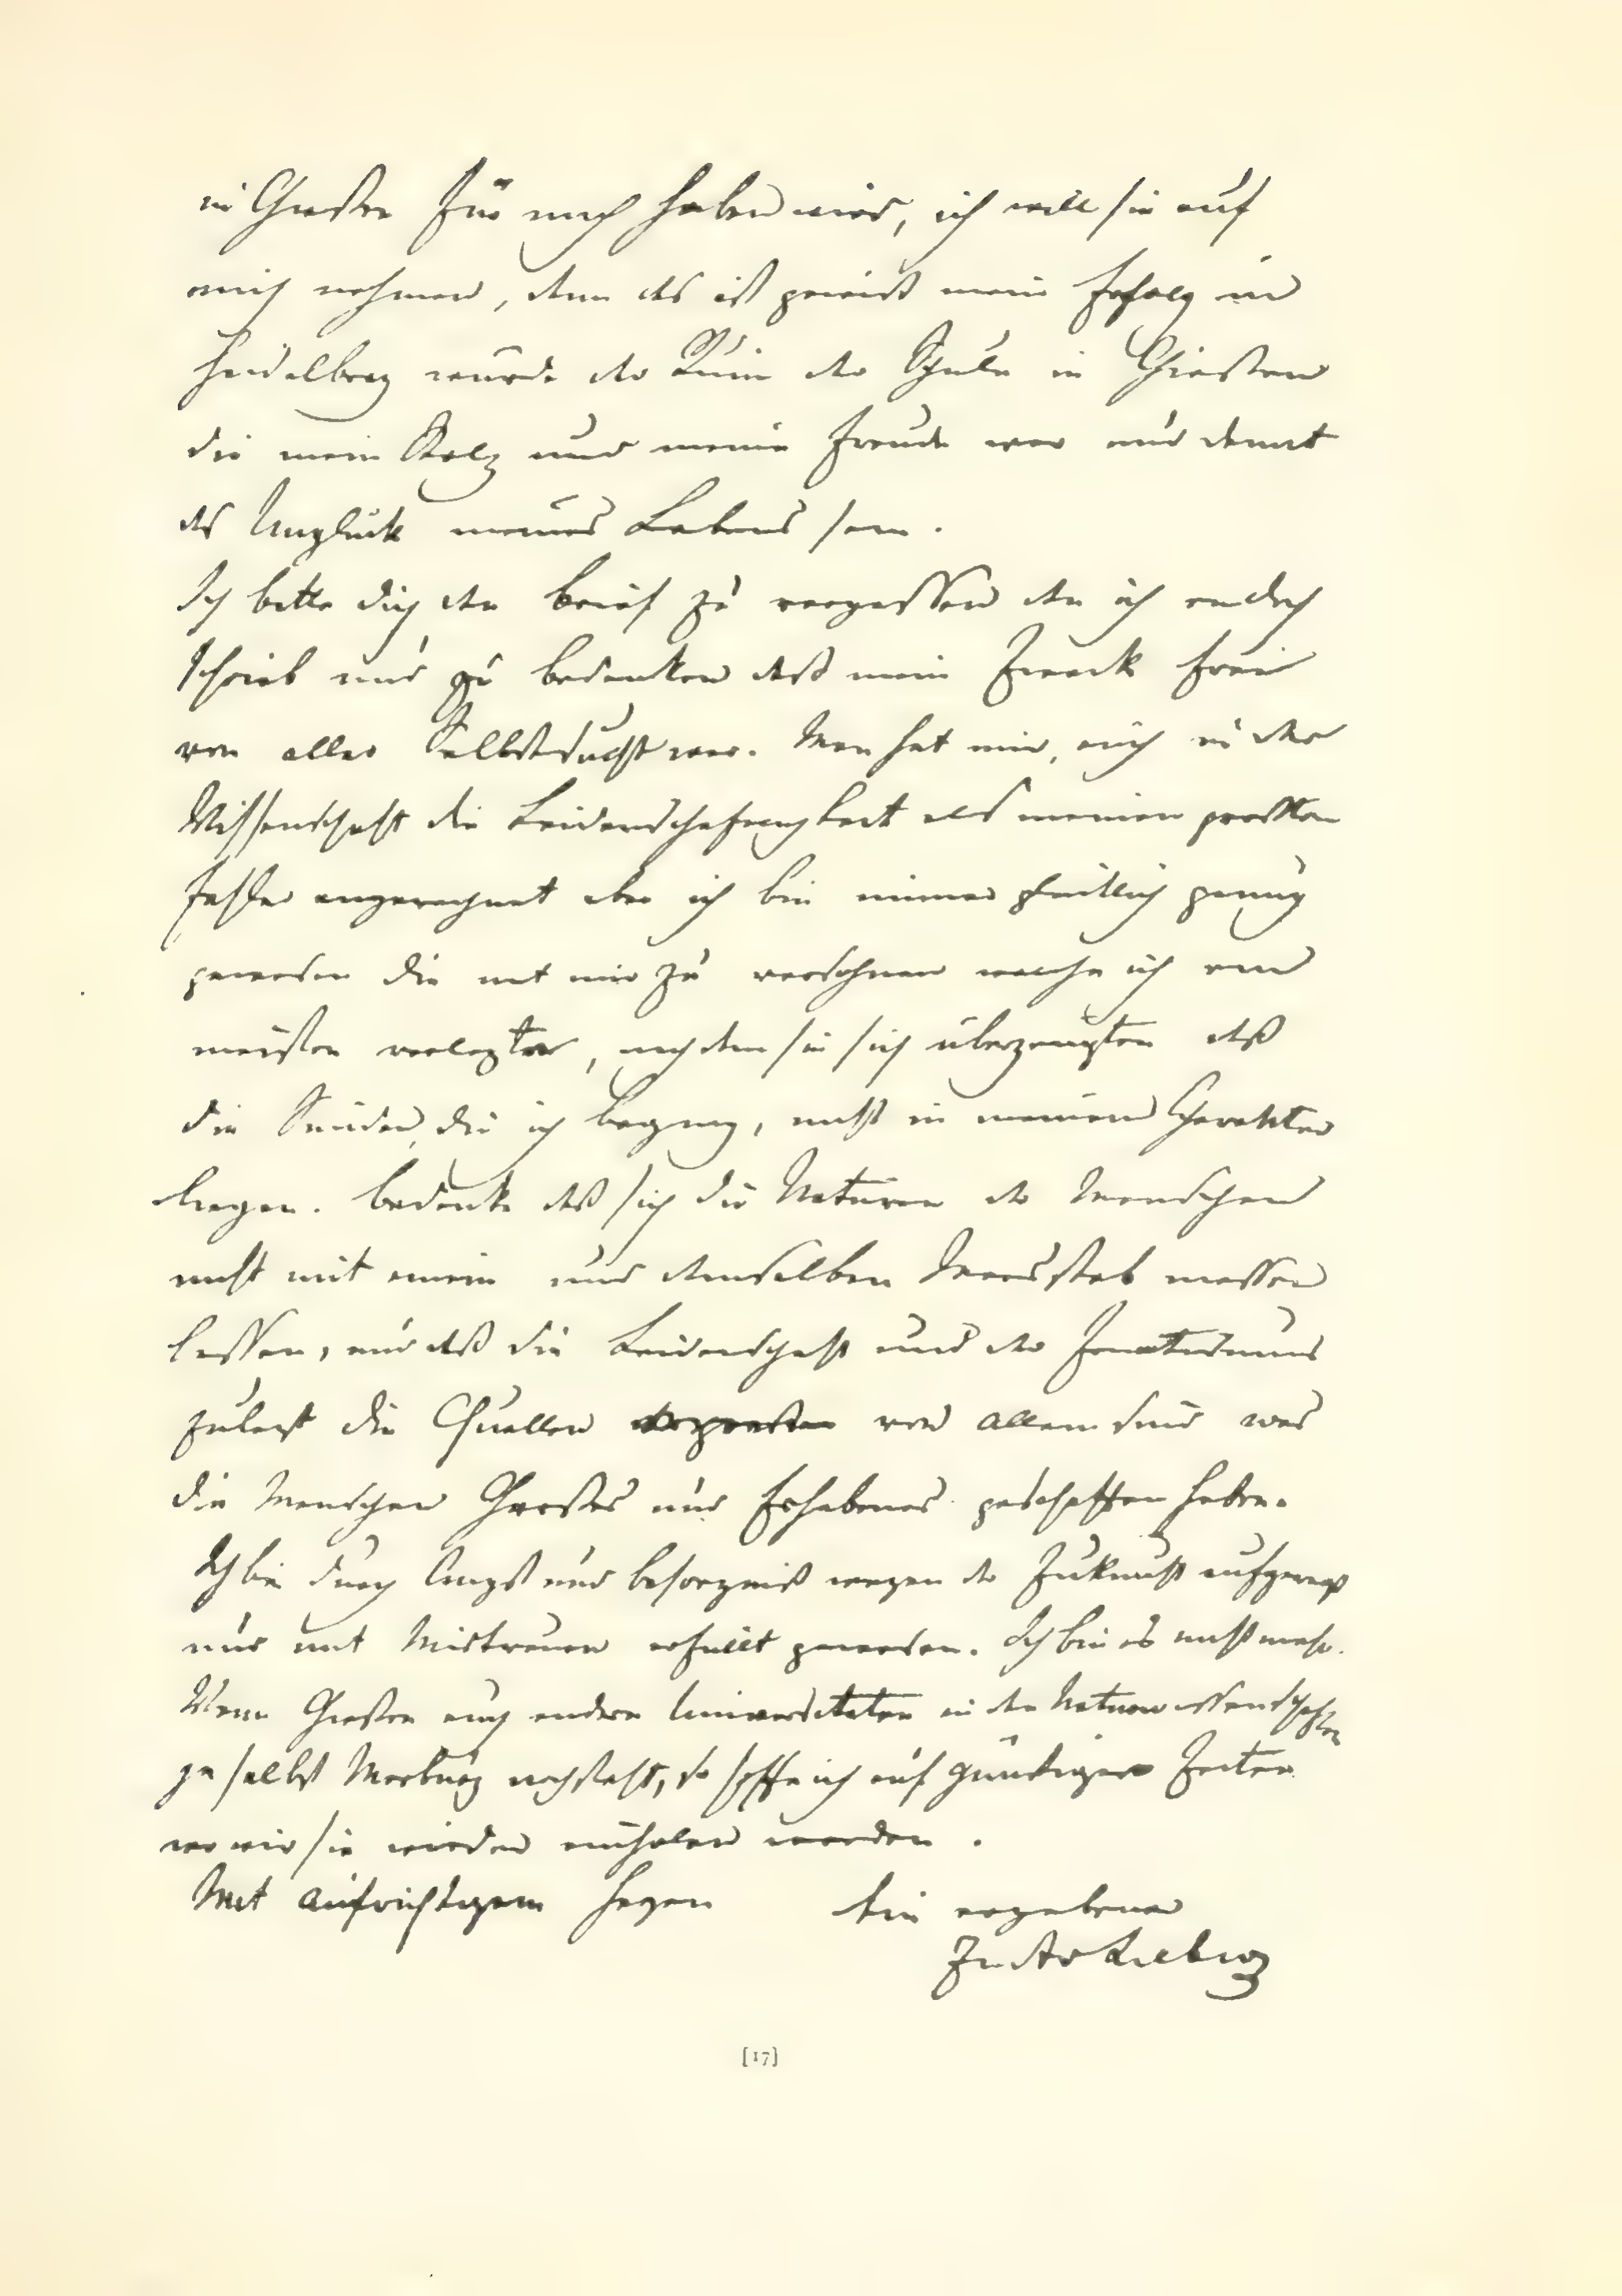 in Giessen für mich haben wird, ich will sie auf
mich nehmen, denn das ist gewiß mein Erfolg in
Heidelberg wurde der Ruin der Schule in Giessen
die mein Stolz und meine Freude war und damit
das Unglück meines Lebens sein.
Ich bitte dich den Brief zu vergessen den ich an dich
schrieb und zu bedenken daß mein Zweck frei
von aller Selbstsucht war. Man hat mir, auch in der
Wissenschaft die Leidenschaftlichkeit als meinen grossten
Fehler angerechnet aber ich bin immer glücklich genug
gewesen die mit mir zu versohnen welche ich am
meisten verlezte, nachdem sie sich überzeugten daß
die Sünden, die ich beging, nicht in meinem Charakter
liegen. Bedenke daß sich die Naturen der Menschen
nicht mit einem und demselben Maasstab messen
lassen, und daß die Leidenschaft und der Fanatismus
zulezt die Quellen von allem sind was
die Menschen Grosses und Erhabenes geschaffen haben.
Ich bin durch Angst und Besorgniß wegen der Zukunft aufgeregt
und mit Mistrauen erfullt gewesen. Ich bin es nicht mehr.
Wenn Giessen auch andern Universitaten in den Naturwissenschaften
ja selbst Marburg nachsteht, so hoffe ich auf günstigere Zeiten
wo wir sie wieder einholen werden.
Mit aufrichtigem Herzen Dein ergebener
Justus Liebig
[17]